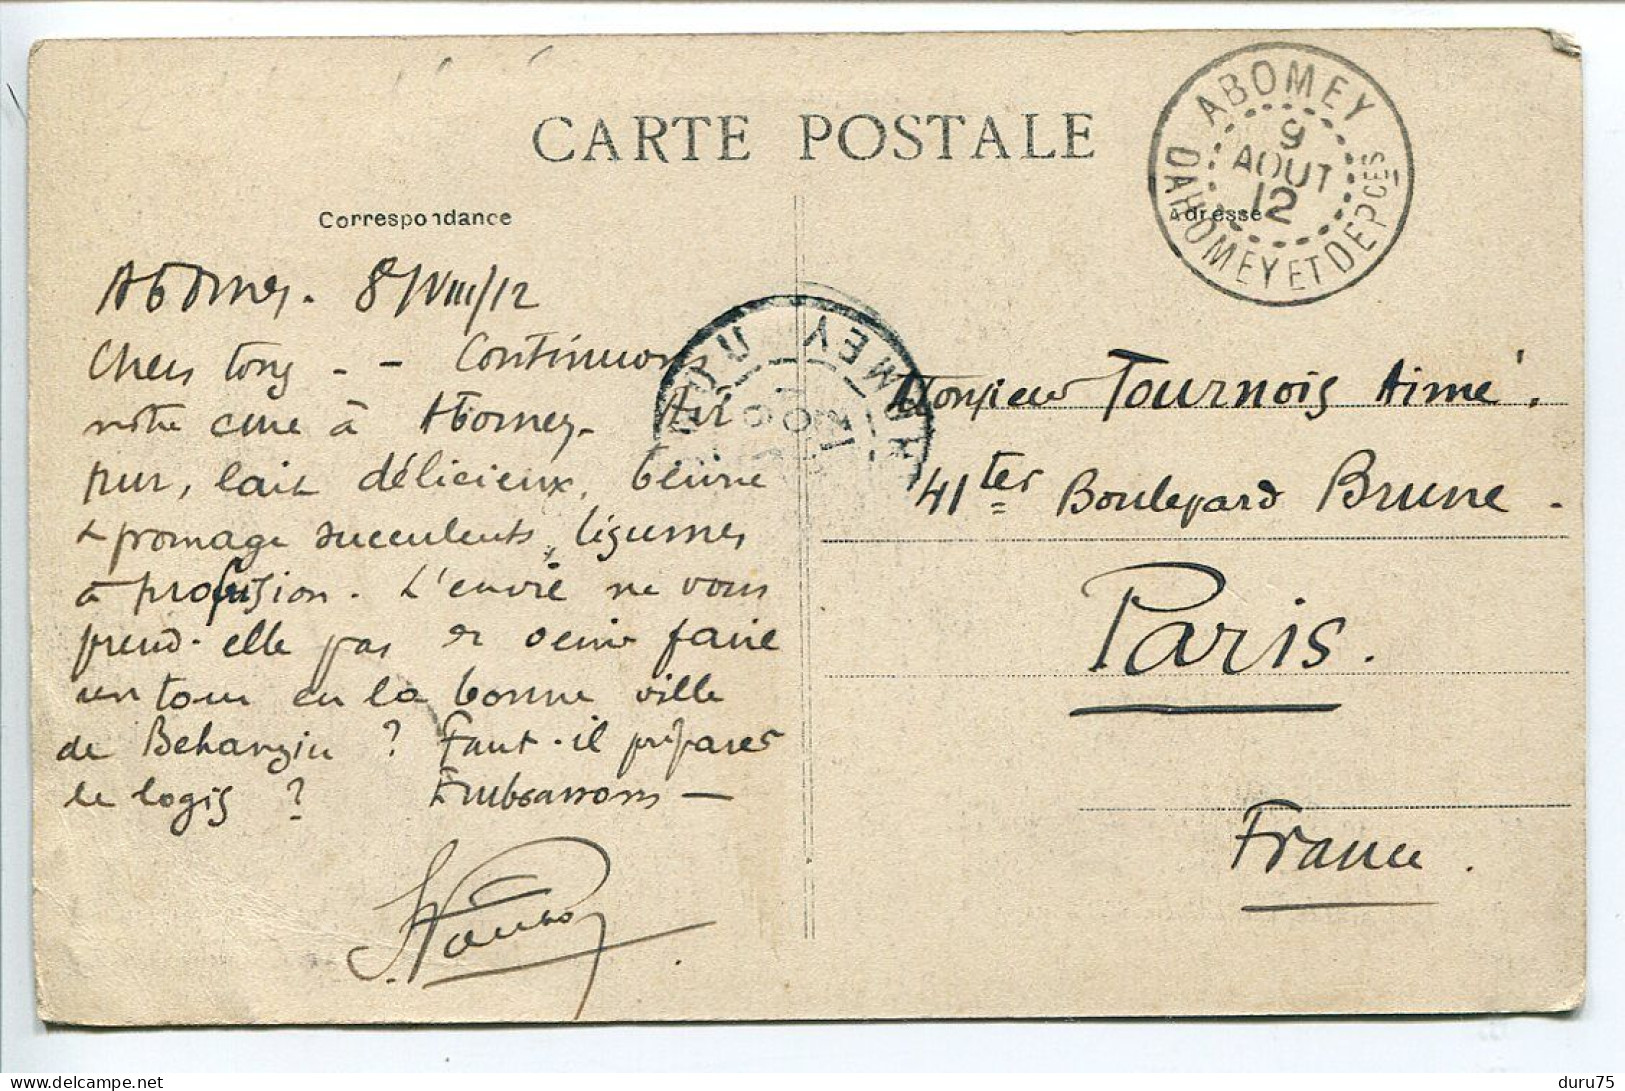 CARTE POSTALE
Correspondance
Adresse
ABOMEY
9
AOUT
12
DAHOMEY ET DEPCES
Abomey. 8/VIII/12
Chers tous - - Continuons
notre cure à Abomey. Air
pur, lait délicieux, beurre
& fromage succulents, légumes
à profusion. L'envie ne vous
prend-elle pas de venir faire
un tour en la bonne ville
de Behanzin ? Faut-il préparer
le logis ? Embrassons —
Monsieur Tournois Aimé.
41 ter Boulevard Brune.
Paris.
France.
delcampe.net
duru75